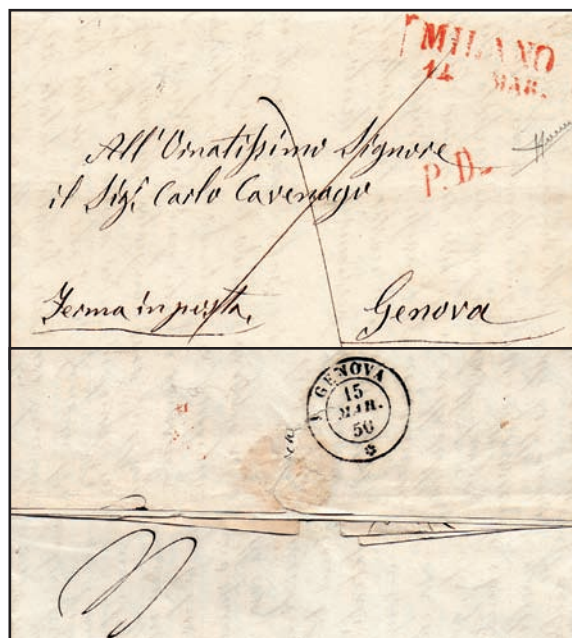 MILANO
14 MAR.
All'Ornatissimo Signore
P.D.
il Sig. Carlo Cavenago
Ferma in posta.
Genova
GENOVA
15
MAR.
56